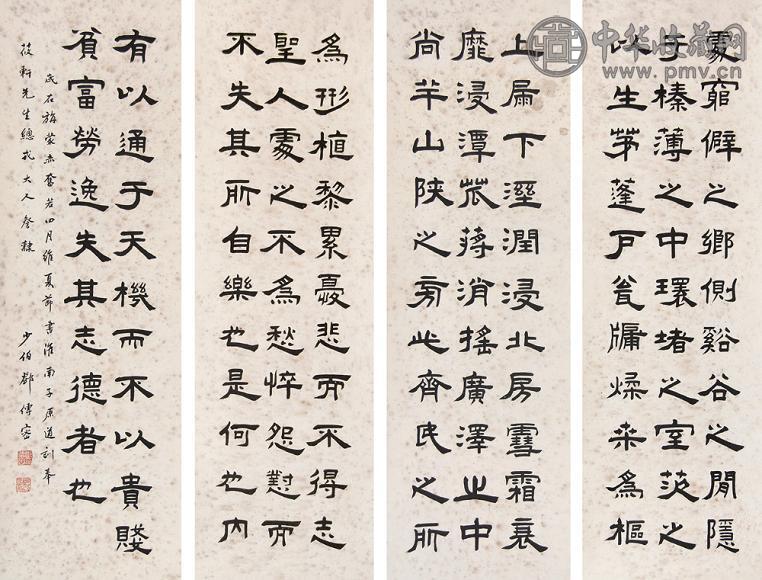 處窮僻之鄉側谿谷之閒隱
于榛薄之中環堵之室茨之
以生茅蓬戶瓮牖煣桑為樞
上屚下溼潤浸北房雪霜衰
靡浸潭苽蔣消搖廣澤之中
尚羊山陜之旁此齊民之所
為形植黎累憂悲而不得志
聖人處之不為愁悴怨懟而
不失其所自樂也是何也內
有以通于天機而不以貴賤
貧富勞逸失其志德者也
旃蒙赤奮若四月維夏節書淮南子原道訓奉
筱軒先生總戎大人 少伯鄧傳密
中华收藏网
www.pmv.cn